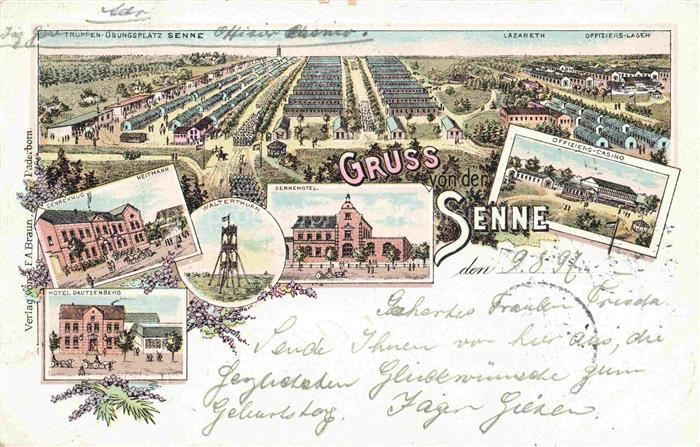 Adr
TRUPPEN-ÜBUNGSPLATZ SENNE Offizier Casino.
LAZARETH OFFIZIERS-LAGER
GRUSS
von der
SENNE
OFFIZIERS-CASINO
HEITMANN
WALTERTHURM
SENNEHOTEL
HOTEL DAUTZENBERG
Verlag von F.A. Braun, Paderborn.
den 9.8.97
Geehrtes Fräulein Frieda.
Sende Ihnen von hier aus, die
herzlichsten Glückwünsche zum
Geburtstag. Jäger Giesen.